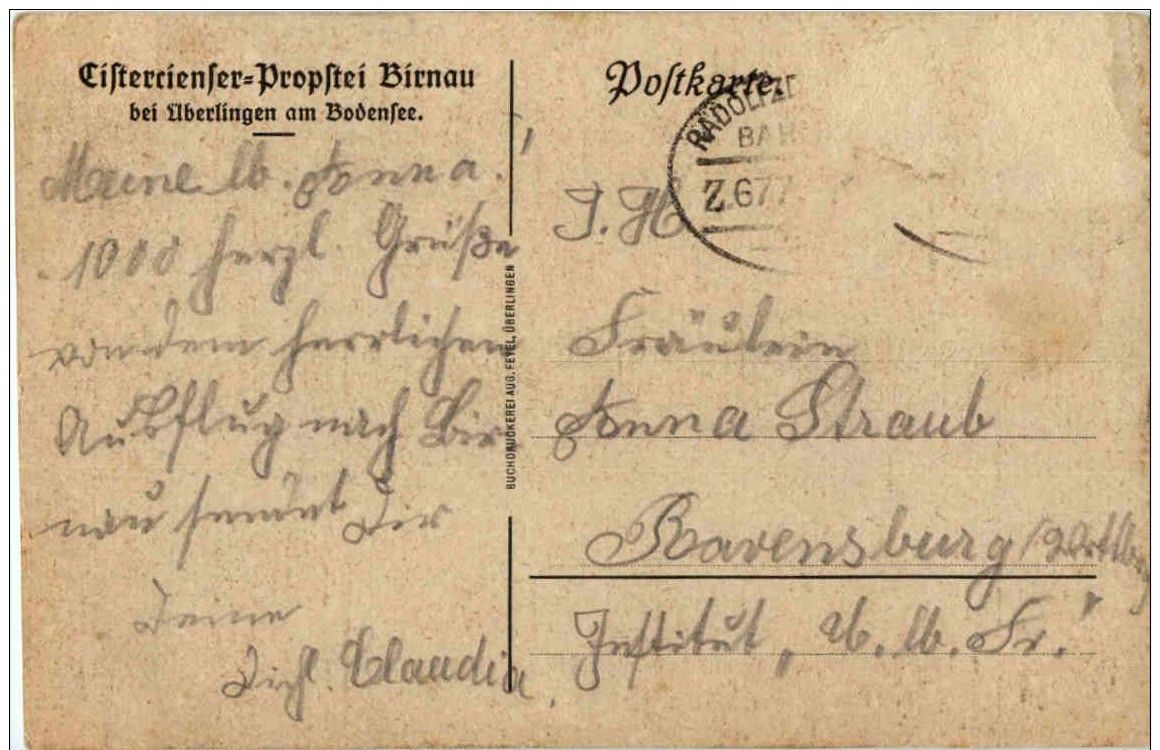 Cistercienser-Propstei Birnau
bei Überlingen am Bodensee.
Meine lb. Anna!
1000 herzl. Grüße
von dem herrlichen
Ausflug nach Bir-
nau sendet Dir
Deine
Claudia.
BUCHDRUCKEREI AUG. FEYEL, ÜBERLINGEN
Postkarte.
RADOLFZE
BAH
Z.677
Fräulein
Anna Straub
Ravensburg /Wrttbg
Institut „U. lb. Fr."